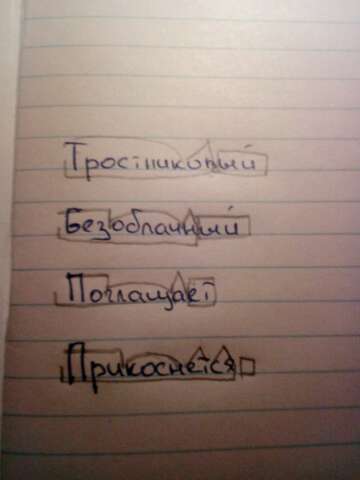 Тростниковый
Безоблачный
Поглощает
Прикоснется